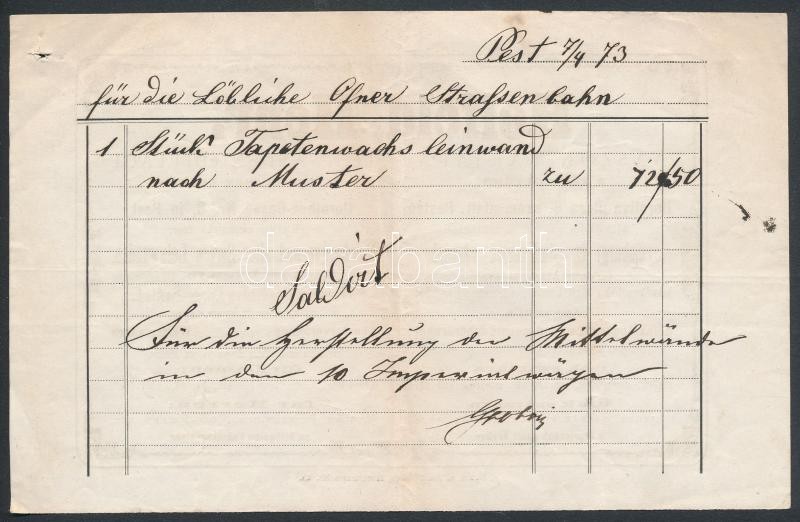 Pest 7/4 73
für die Löbliche Ofner Strassenbahn
1 Stück Tapetenwachsleinwand
nach Muster zu 72 50
Saldirt
darabanth
Für die Herstellung der Mittelwände
in den 10 Imperialwägen